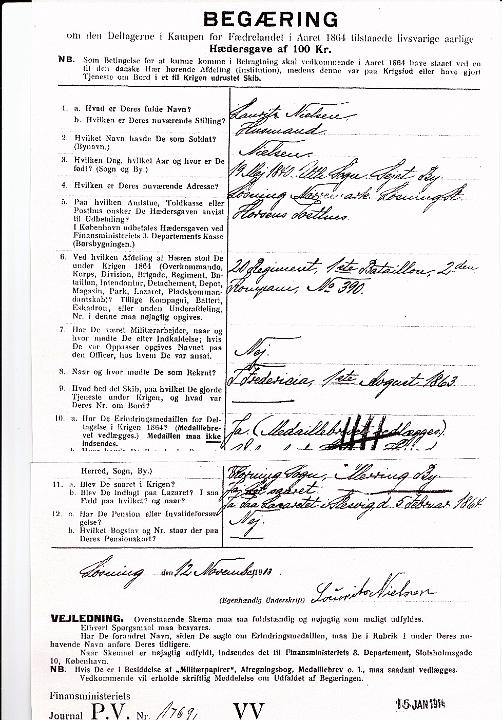 BEGÆRING
om den Deltagerne i Kampen for Fædrelandet i Aaret 1864 tilstaaede livsvarige aarlige
Hædersgave af 100 Kr.
NB. Som Betingelse for at kunne komme i Betragtning skal vedkommende i Aaret 1864 have staaet ved en
til den danske Hær hørende Afdeling (Institution), medens denne var paa Krigsfod eller have gjort
Tjeneste om Bord i et til Krigen udrustet Skib.
1. a. Hvad er Deres fulde Navn? Laurits Nielsen
b. Hvilken er Deres nuværende Stilling? Husmand
2. Hvilket Navn havde De som Soldat? Nielsen
(Bynavn.)
3. Hvilken Dag, hvilket Aar og hvor er De 1840. Sogn, By
født? (Sogn og By.)
4. Hvilken er Deres nuværende Adresse? Løsning Mark Løsning St.
5. Paa hvilken Amtstue, Toldkasse eller Horsens
Posthus ønsker De Hædersgaven anvist
til Udbetaling?
I København udbetales Hædersgaven ved
Finansministeriets 3. Departements Kasse
(Børsbygningen.)
6. Ved hvilken Afdeling af Hæren stod De 20 Regiment, 1ste Bataillon, 2den
under Krigen 1864 (Overkommando, Kompani, No 390.
Korps, Division, Brigade, Regiment, Ba-
taillon, Intendantur, Detachement, Depot,
Magasin, Park, Lazaret, Pladskomman-
dantskab)? Tillige Kompagni, Batteri,
Eskadron, eller anden Underafdeling,
Nr. i denne maa nøjagtig opgives.
7. Har De været Militærarbejder, naar og Nej
hvor mødte De efter Indkaldelse; hvis
De var Oppasser opgives Navnet paa
den Officer, hos hvem De var ansat.
8. Naar og hvor mødte De som Rekrut? I Fredericia, 1ste August 1863.
9. Hvad hed det Skib, paa hvilket De gjorde
Tjeneste under Krigen, og hvad var
Deres Nr. om Bord?
10. a. Har De Erindringsmedaillen for Del- Ja. (Medaillebrevet vedlægges).
tagelse i Krigen 1864? (Medaillebre-
vet vedlægges.) Medaillen maa ikke
indsendes.
Herred, Sogn, By.) Sogn, By
11. a. Blev De saaret i Krigen?
b. Blev De indlagt paa Lazaret? I saa Ja paa Lazarettet i Slesvig d. 5 Februar 1864
Fald paa hvilket? og naar?
12. a. Har De Pension eller Invalideforsør- Nej
gelse?
b. Hvilket Bogstav og Nr. staar der paa
Deres Pensionskort?
Løsning den 12 November 1913.
(Egenhændig Underskrift) Laurits Nielsen
VEJLEDNING. Ovenstaaende Skema maa saa fuldstændig og nøjagtig som muligt udfyldes.
Ethvert Spørgsmaal maa besvares.
Har De forandret Navn, siden De søgte om Erindringsmedaillen, maa De i Rubrik 1 under Deres nu-
havende Navn anføre Deres tidligere.
Naar Skemaet er nøjagtig udfyldt, indsendes det til Finansministeriets 3. Departement, Slotsholmsgade
10, København.
NB. Hvis De er i Besiddelse af „Militærpapirer“, Afregningsbog, Medaillebrev o. l., maa saadant vedlægges.
Vedkommende vil erholde skriftlig Meddelelse om Udfaldet af Begæringen.
Finansministeriets
Journal P.V. Nr. VV
15 JAN 1914